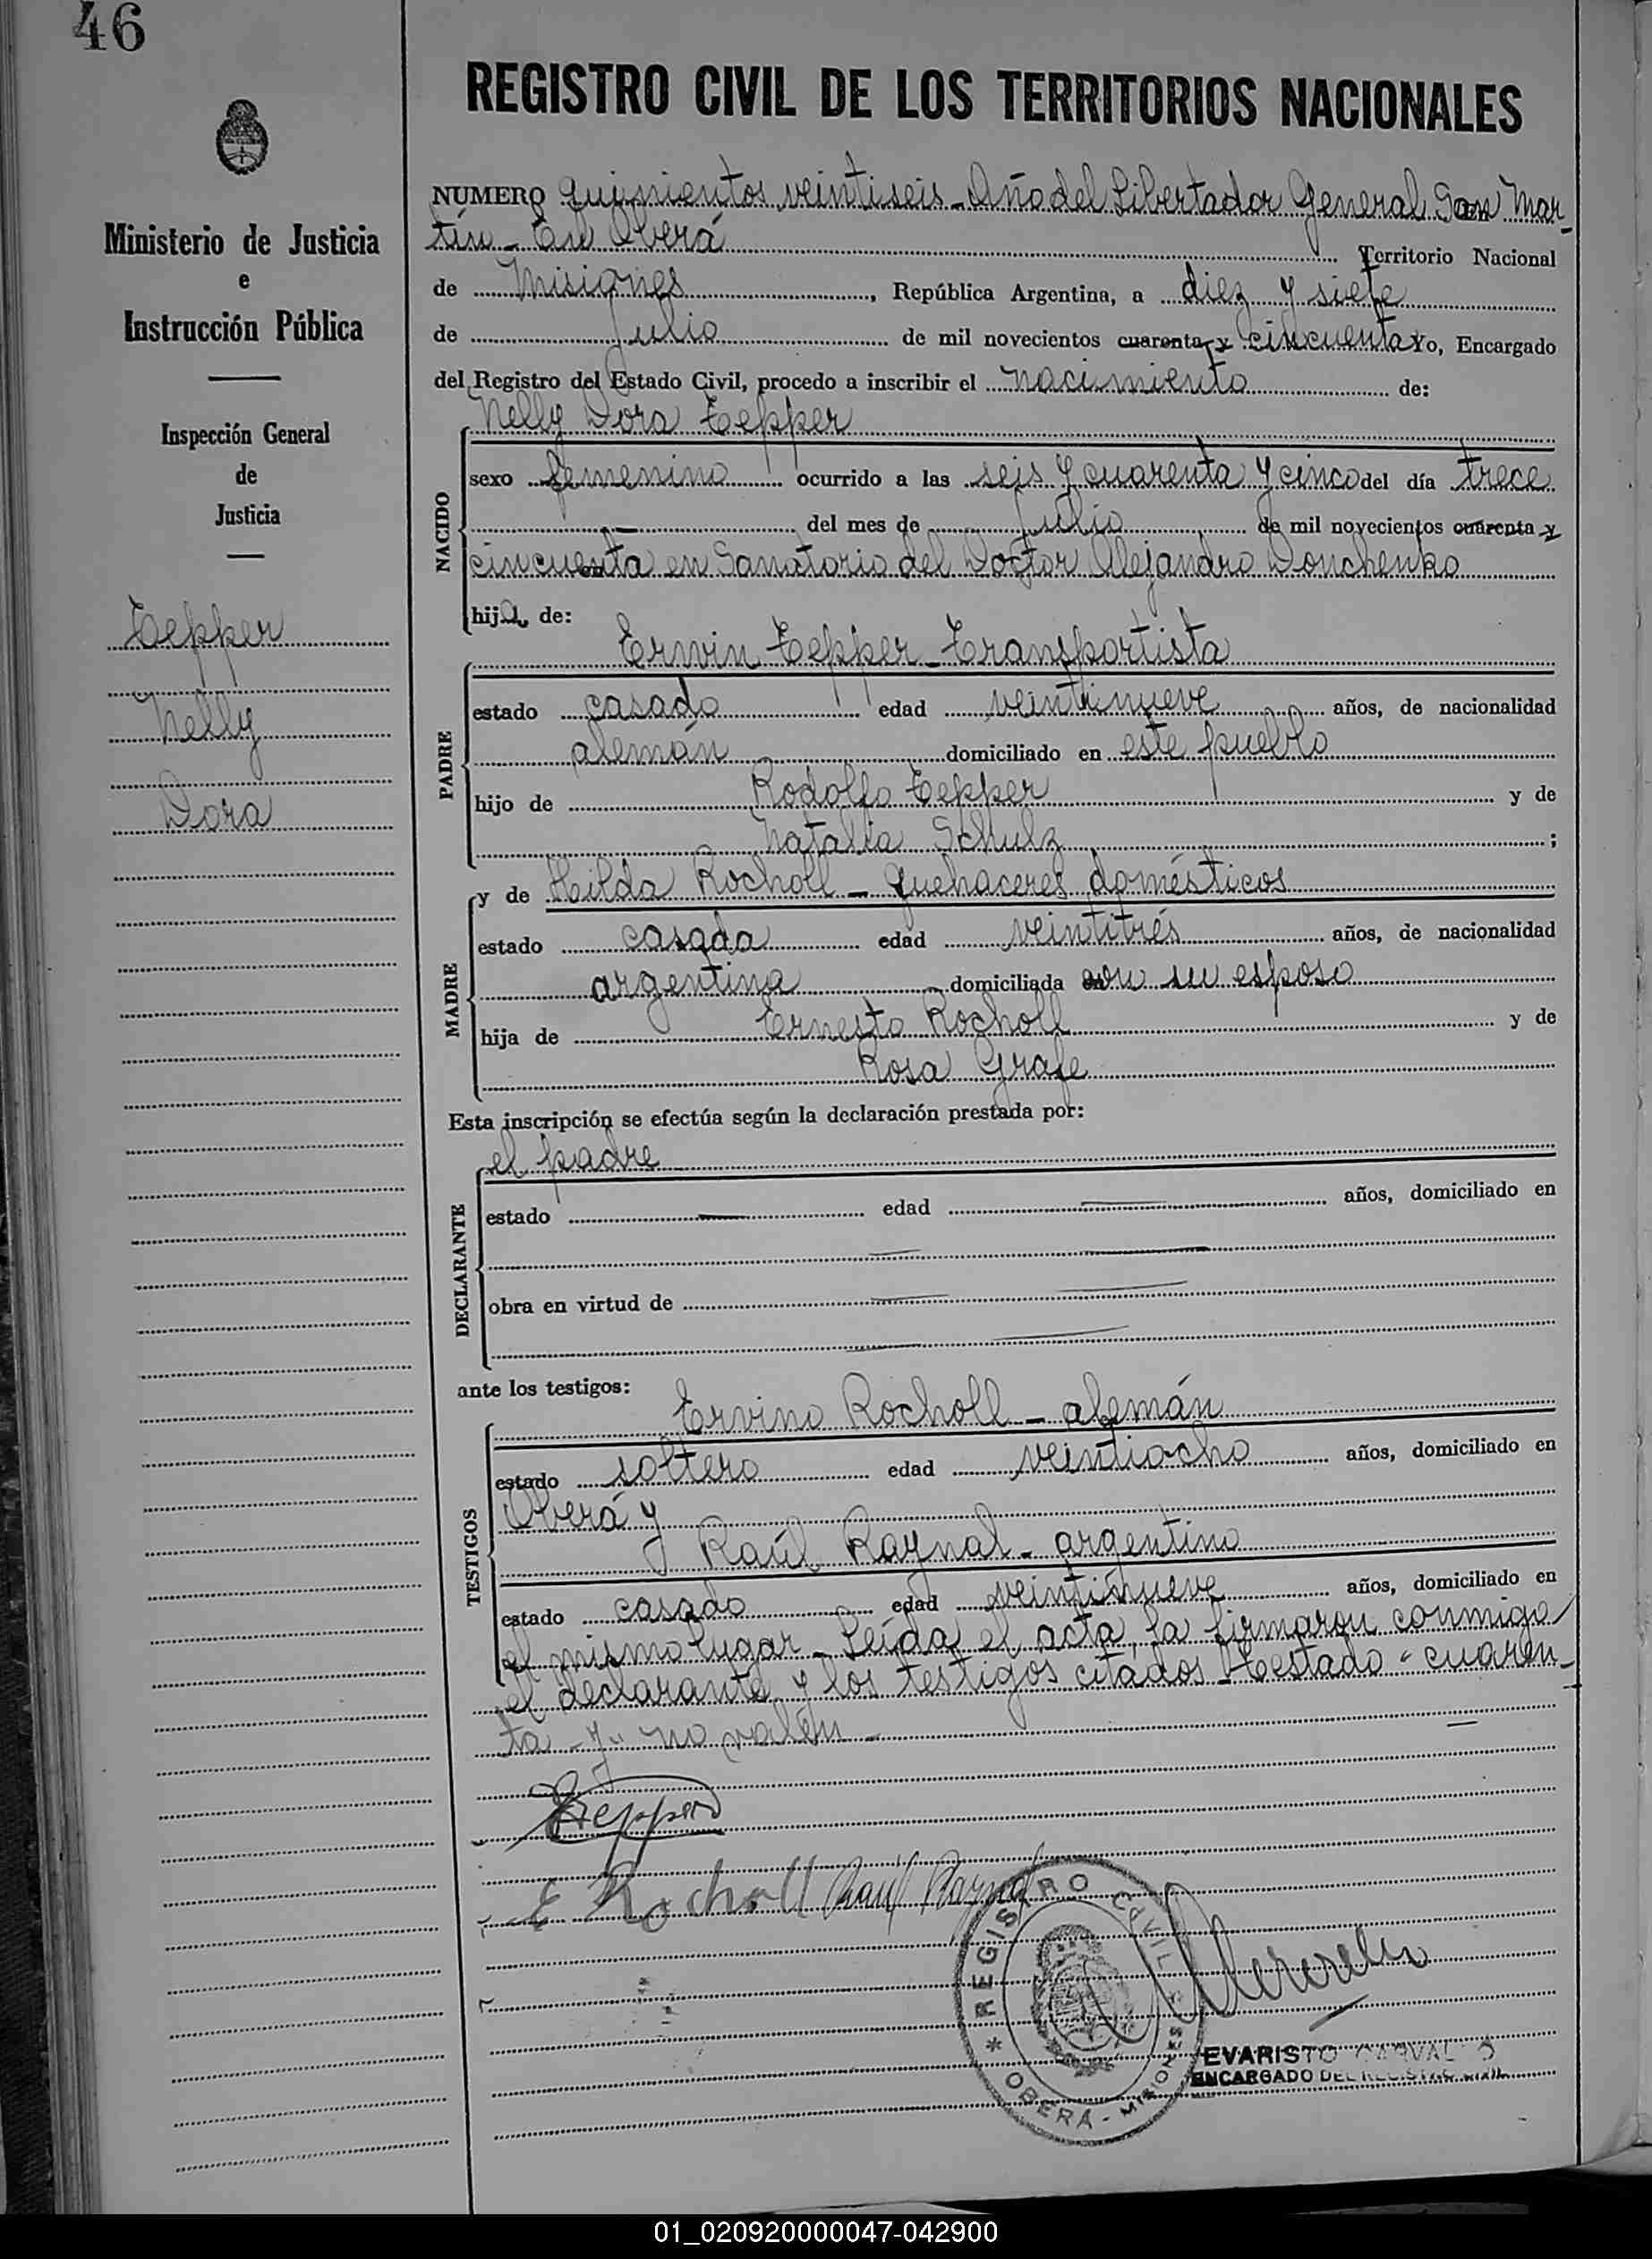 46
REGISTRO CIVIL DE LOS TERRITORIOS NACIONALES
Ministerio de Justicia
e
Instrucción Pública
Inspección General
de
Justicia
Tepper
Nelly
Dora
NUMERO quinientos veintiseis - Año del Libertador General San Mar-
tín - En Oberá Territorio Nacional
de Misiones, República Argentina, a diez y siete
de Julio de mil novecientos cuarenta y cincuenta Yo, Encargado
del Registro del Estado Civil, procedo a inscribir el nacimiento de:
Nelly Dora Tepper
NACIDO
sexo femenino ocurrido a las seis y cuarenta y cinco del día trece
— del mes de Julio de mil novecientos cuarenta y
cincuenta en Sanatorio del Doctor Alejandro Donchenko
hija de:
PADRE
Erwin Tepper - Transportista
estado casado edad veintinueve años, de nacionalidad
alemán domiciliado en este pueblo
hijo de Rodolfo Tepper y de
Natalia Schulz ;
MADRE
y de Hilda Rocholl - quehaceres domésticos
estado casada edad veintitrés años, de nacionalidad
argentina domiciliada con su esposo
hija de Ernesto Rocholl y de
Rosa Grafe
Esta inscripción se efectúa según la declaración prestada por:
DECLARANTE
el padre
estado — edad — años, domiciliado en
obra en virtud de
ante los testigos:
TESTIGOS
Ervino Rocholl - alemán
estado soltero edad veintiocho años, domiciliado en
Oberá y
Raúl Raynal - argentino
estado casado edad veintinueve años, domiciliado en
el mismo lugar - Leída el acta, la firmaron conmigo
el declarante y los testigos citados - Testado "cuaren-
ta - y" no valen -
ETepper
E Rocholl Raúl Raynal
REGISTRO CIVIL
* OBERA - MISIONES *
EVARISTO
ENCARGADO DEL REGISTRO CIVIL
01_020920000047-042900